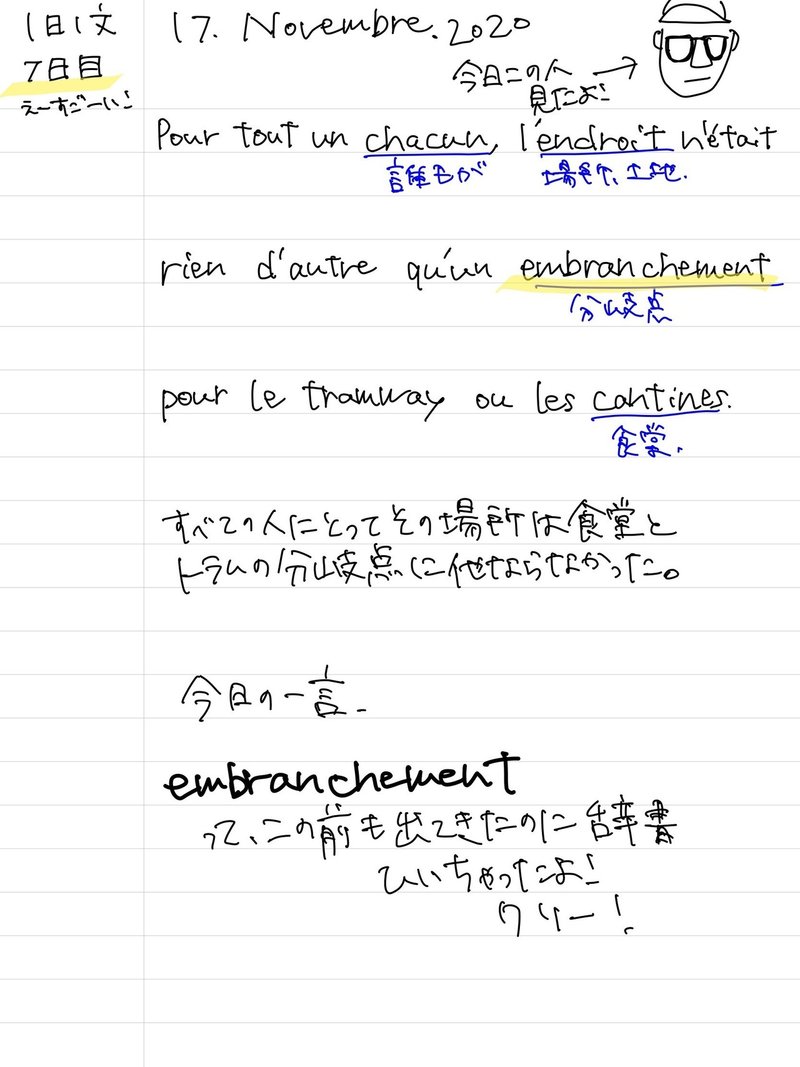 1日1文
7日目
えーすごーい!
17. Novembre. 2020
今日この人
見たよ!
Pour tout un chacun, l'endroit n'était
誰もが 場所、土地.
rien d'autre qu'un embranchement
分岐点
pour le tramway ou les cantines.
食堂.
すべての人にとってその場所は食堂と
トラムの分岐点に他ならなかった。
今日の一言.
embranchement
って、この前も出てきたのに辞書
ひいちゃったよ!
クソー!